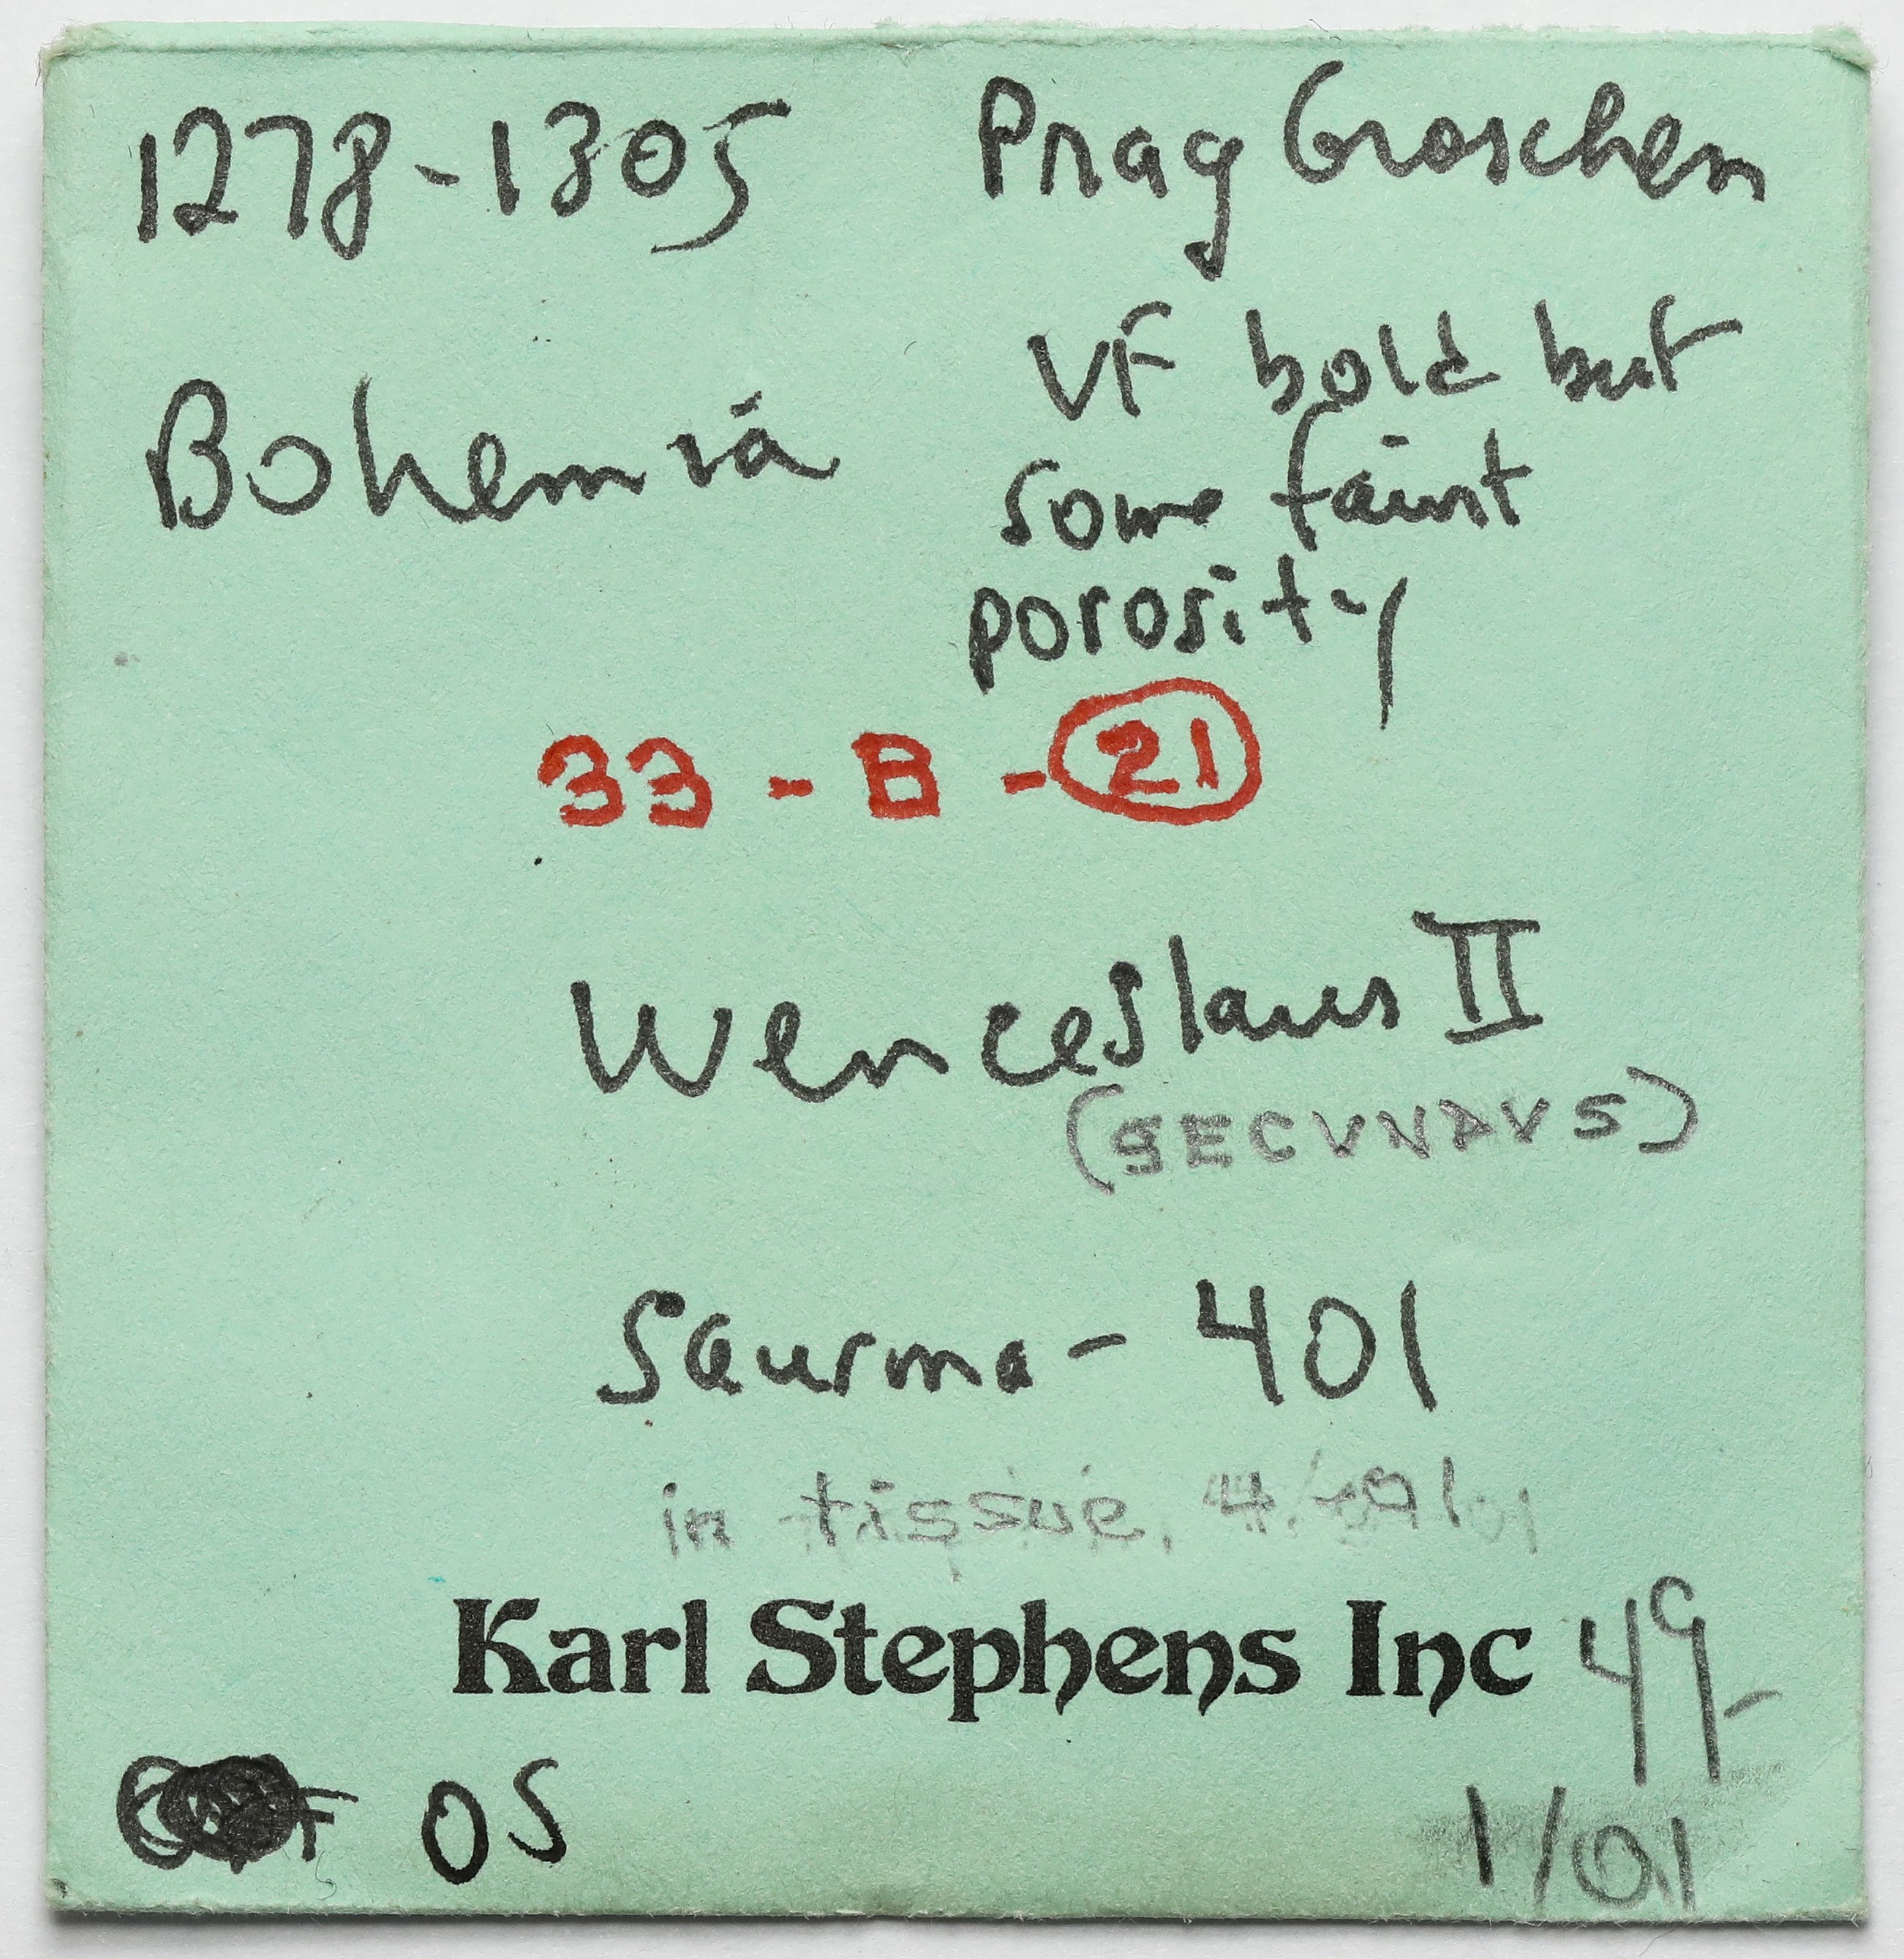 1278-1305 Prag Groschen
Bohemia
VF bold but
some faint
porosity
33 - B - 21
Wenceslaus II
(SECVNDVS)
Saurma - 401
in tissue,
Karl Stephens Inc 49-
OS
1/01